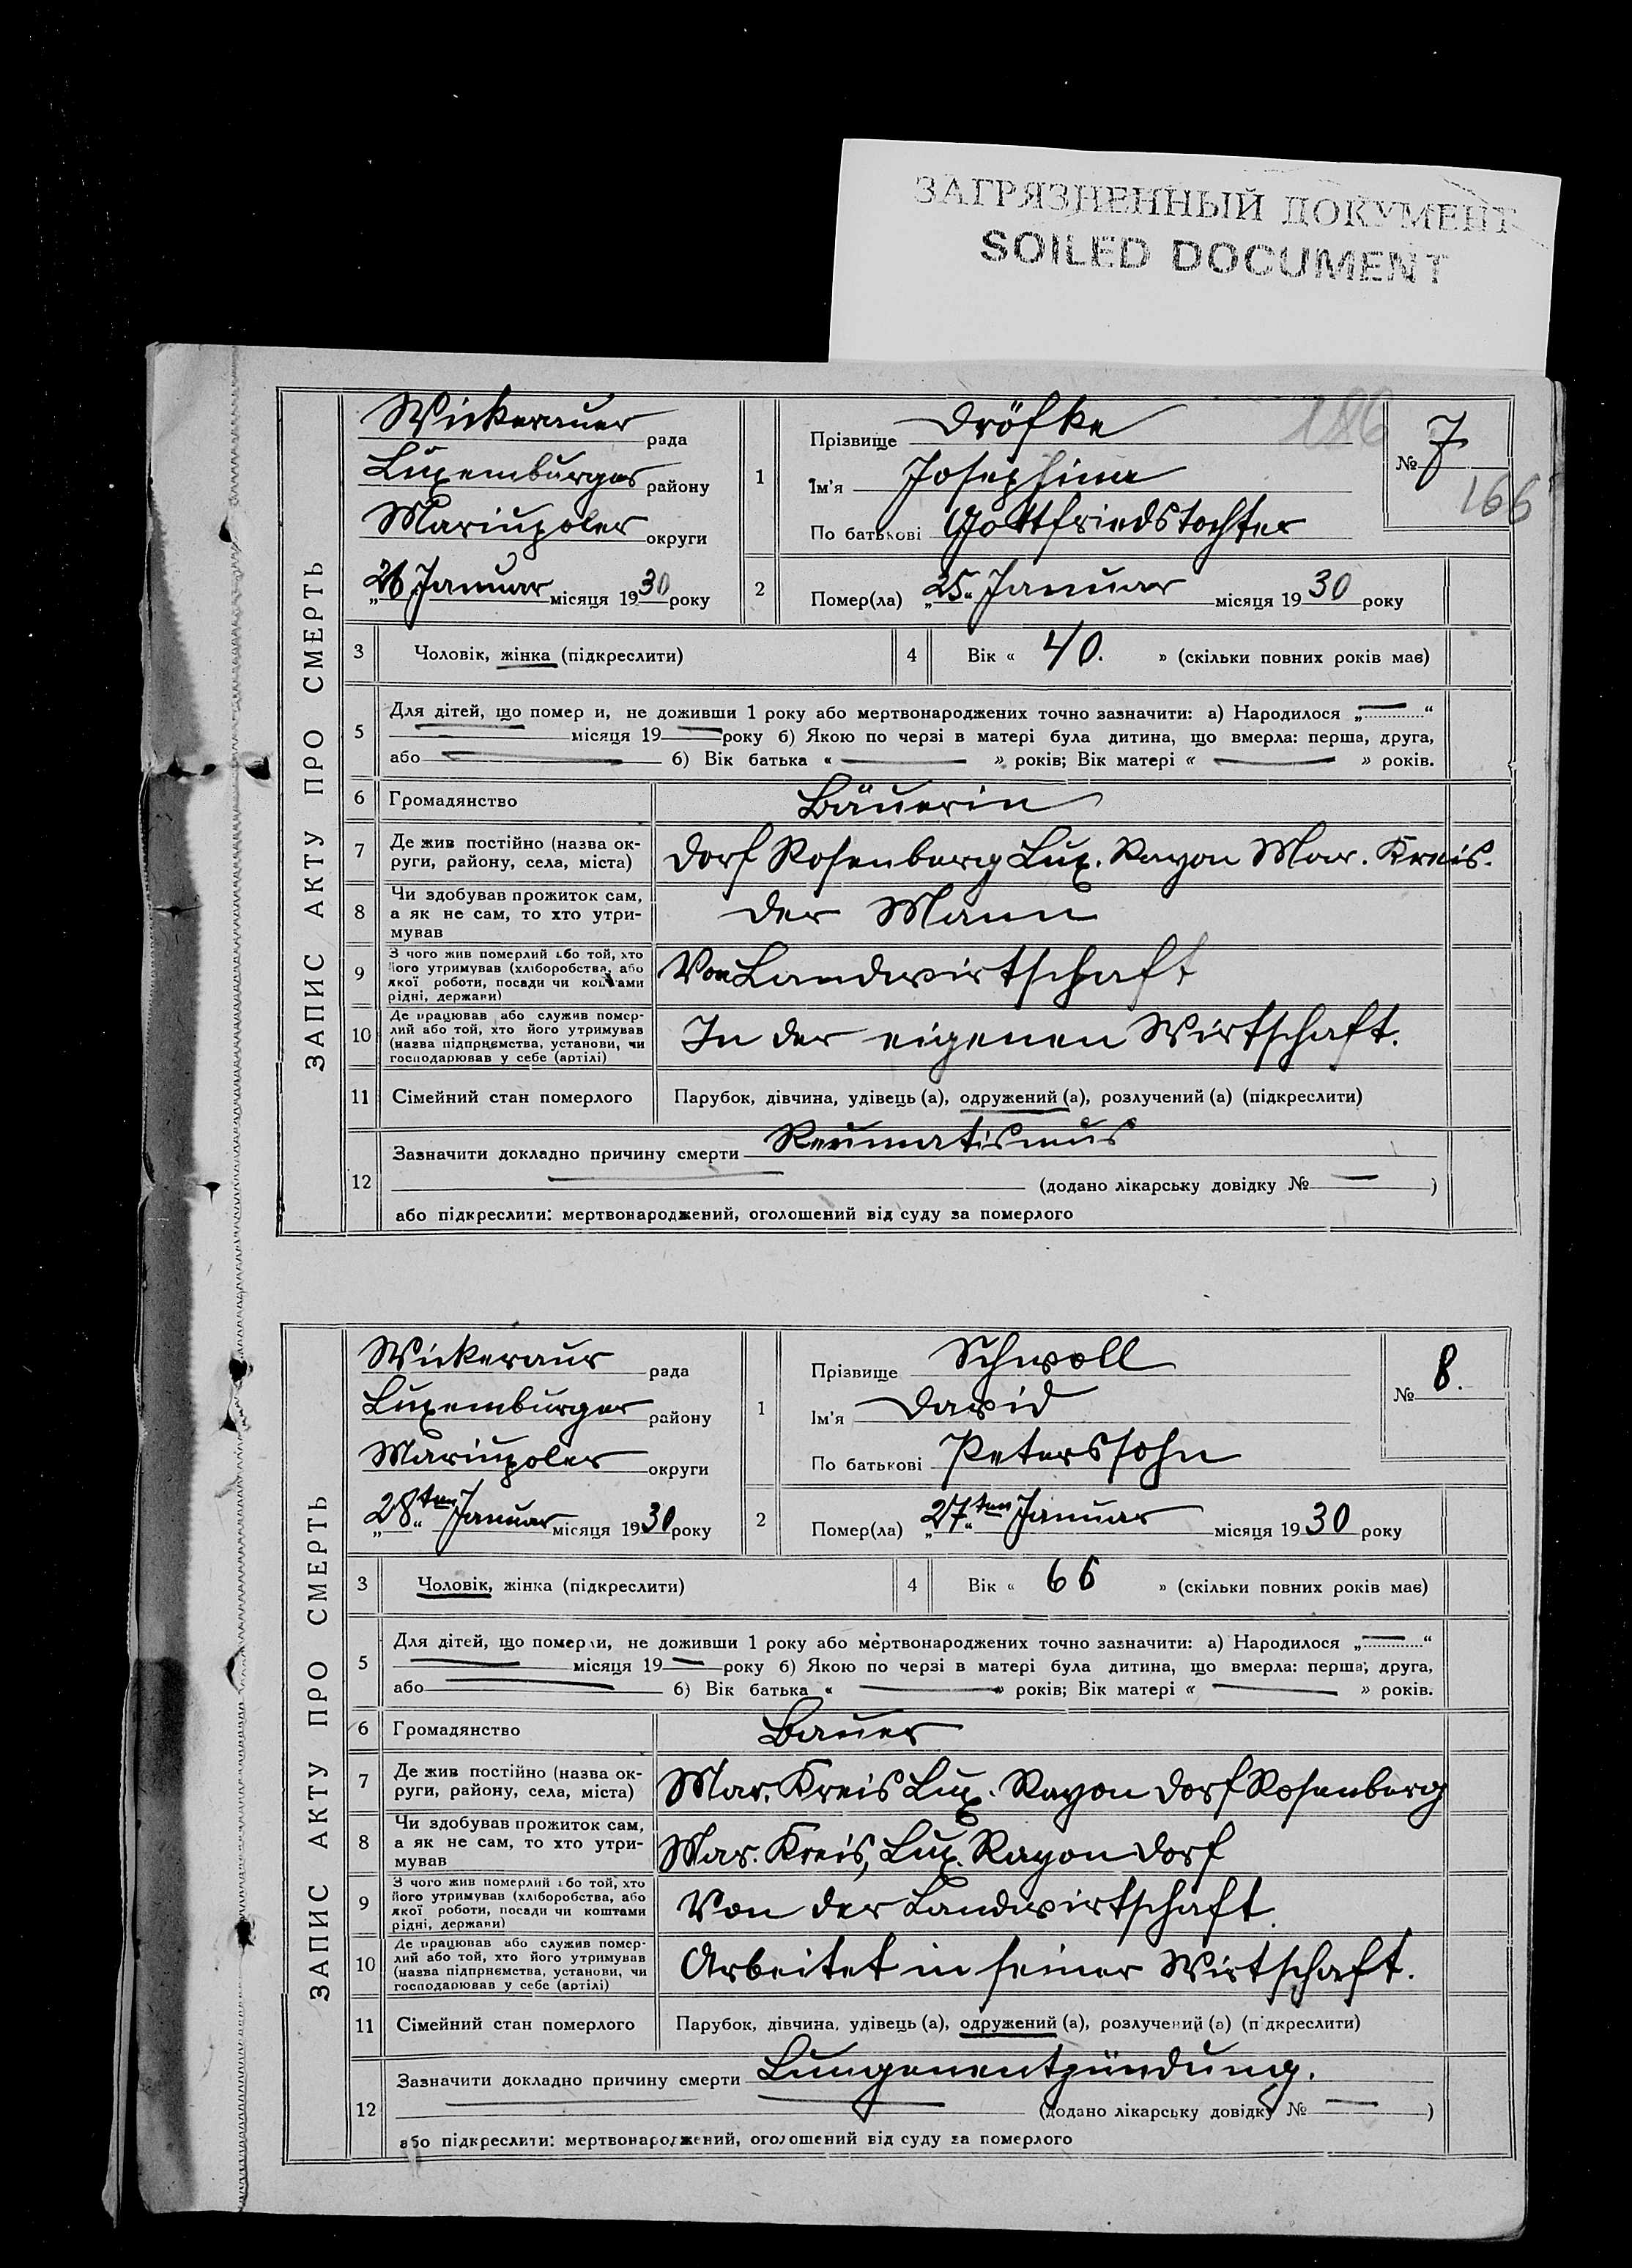 ЗАГРЯЗНЕННЫЙ ДОКУМЕНТ
SOILED DOCUMENT
186
166
ЗАПИС АКТУ ПРО СМЕРТЬ
Wickerauer рада
Luxemburger району
Mariupoler округи
„26 Januar місяця 1930 року
1
Прізвище Dröfke
Ім'я Josephina
По батькові Gottfriedstochter
№ 7
2
Помер(ла) „25“ Januar місяця 1930 року
3 Чоловік, жінка (підкреслити)
4 Вік « 40. » (скільки повних років має)
5 Для дітей, що померли, не доживши 1 року або мертвонароджених точно зазначити: а) Народилося „—“
— місяця 19— року б) Якою по черзі в матері була дитина, що вмерла: перша, друга,
або — б) Вік батька « — » років; Вік матері « — » років.
6 Громадянство Bäuerin
7 Де жив постійно (назва ок-
руги, району, села, міста) Dorf Rosenberg Lux. Rayon Mar. Kreis.
8 Чи здобував прожиток сам,
а як не сам, то хто утри-
мував der Mann
9 З чого жив померлий або той, хто
його утримував (хліборобства, або
якої роботи, посади чи коштами
рідні, держави) Von Landwirtschaft
10 Де працював або служив помер-
лий або той, хто його утримував
(назва підприємства, установи, чи
господарював у себе (артілі) In der eigenen Wirtschaft.
11 Сімейний стан померлого Парубок, дівчина, удівець (а), одружений (а), розлучений (а) (підкреслити)
12 Зазначити докладно причину смерти Reumatismus
— (додано лікарську довідку № — )
або підкреслити: мертвонароджений, оголошений від суду за померлого
ЗАПИС АКТУ ПРО СМЕРТЬ
Wickeraur рада
Luxemburger району
Mariupoler округи
„28ten“ Januar місяця 1930 року
1
Прізвище Schwoll
Ім'я David
По батькові Peterssohn
№ 8.
2
Помер(ла) „27ten“ Januar місяця 1930 року
3 Чоловік, жінка (підкреслити)
4 Вік « 66 » (скільки повних років має)
5 Для дітей, що померли, не доживши 1 року або мертвонароджених точно зазначити: а) Народилося „—“
— місяця 19— року б) Якою по черзі в матері була дитина, що вмерла: перша, друга,
або — б) Вік батька « — » років; Вік матері « — » років.
6 Громадянство Bauer
7 Де жив постійно (назва ок-
руги, району, села, міста) Mar. Kreis Lux. Rayon Dorf Rosenberg
8 Чи здобував прожиток сам,
а як не сам, то хто утри-
мував Mar. Kreis, Lux. Rayon Dorf
9 З чого жив померлий або той, хто
його утримував (хліборобства, або
якої роботи, посади чи коштами
рідні, держави) Von der Landwirtschaft.
10 Де працював або служив помер-
лий або той, хто його утримував
(назва підприємства, установи, чи
господарював у себе (артілі) Arbeitet in seiner Wirtschaft.
11 Сімейний стан померлого Парубок, дівчина, удівець (а), одружений (а), розлучений (а) (підкреслити)
12 Зазначити докладно причину смерти Lungenentzündung.
— (додано лікарську довідку № — )
або підкреслити: мертвонароджений, оголошений від суду за померлого